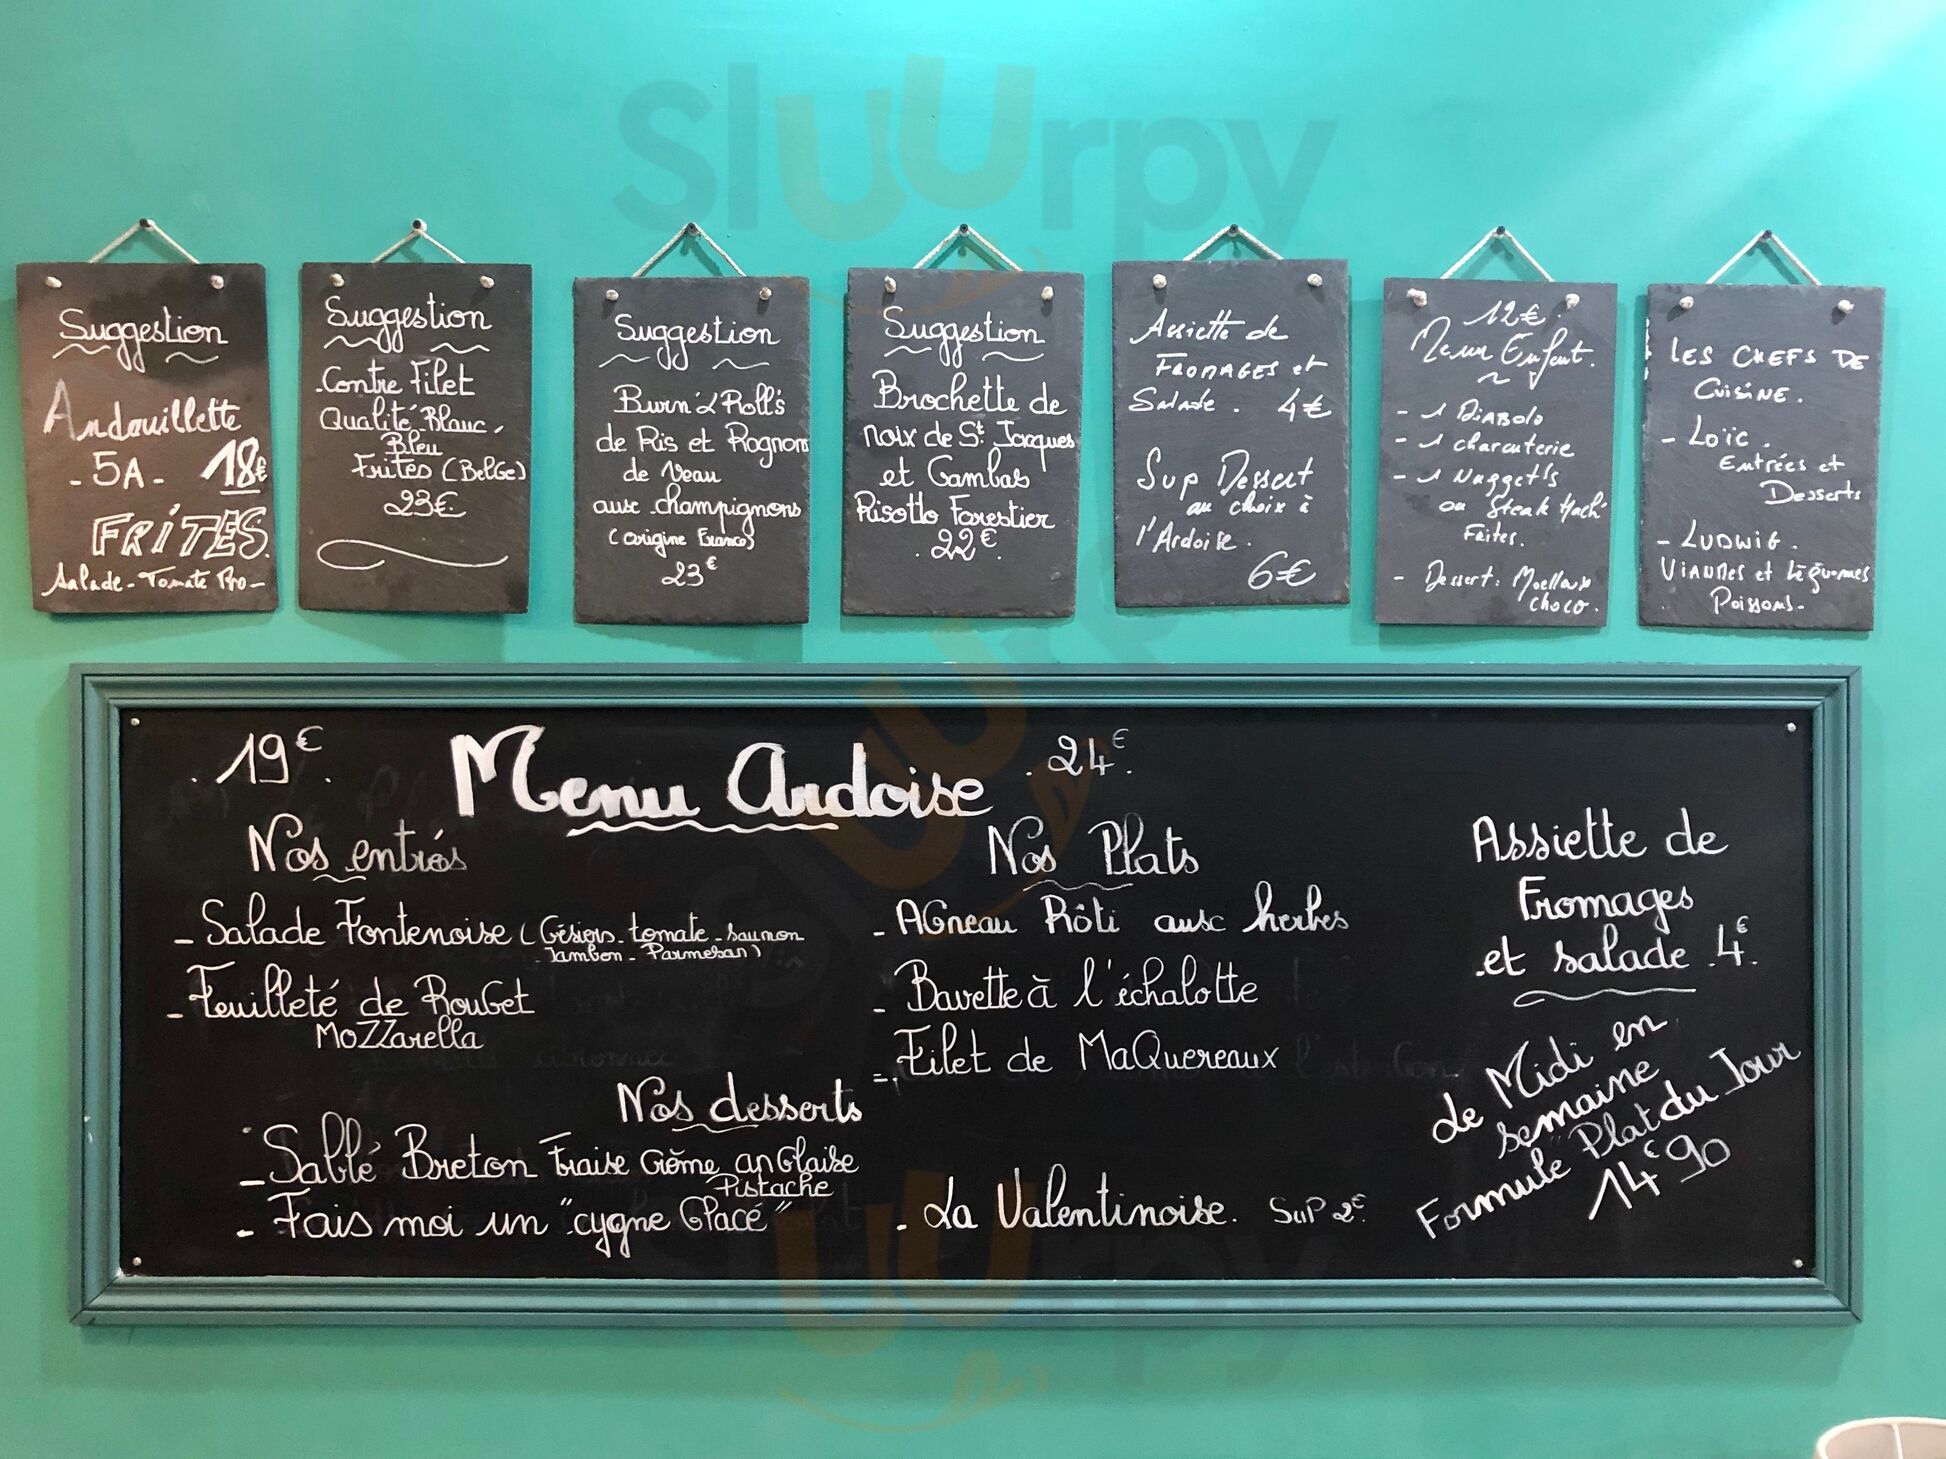 Sluurpy
Suggestion
Andouillette
- 5A - 18€
FRiTES
Salade - Tomate Pro -
Suggestion
Contre Filet
Qualité Blanc,
Bleu
Frites (BelGe)
23€.
Suggestion
Burn'z Roll's
de Ris et Rognons
de Veau
aux champignons
(origine France)
23€
Suggestion
Brochette de
noix de St. Jacques
et Gambas
Risotto Forestier
. 22€.
Assiette de
FROMAGES et
Salade . 4€
Sup Dessert
au choix à
l'Ardoise.
6€
12€.
Menu Enfant.
- 1 DiABolo
- 1 charcuterie
- 1 Nuggetts
ou Steak Hach'
Frites.
- Dessert: Moelleux
choco.
LES CHEFS DE
CuiSiNE.
- Loïc.
Entrées et
Desserts
- LUDWiG.
ViANDES et Légumes
Poissons-
. 19€. Menu Ardoise . 24€.
Nos entrés
- Salade Fontenoise (Gésiers - tomate - saumon
- Jambon - Parmesan)
- Feuilleté de RouGet
MoZZarella
Nos desserts
- Sablé Breton Fraise Crème anGlaise
Pistache
- Fais moi un "cygne Glacé"
Nos Plats
- AGneau Rôti aux herbes
- Bavette à l'échalotte
- Filet de MaQuereaux
- La Valentinoise. SuP 2€.
Assiette de
Fromages
et salade .4€.
de Midi en
semaine
Formule "Plat du Jour
14€90